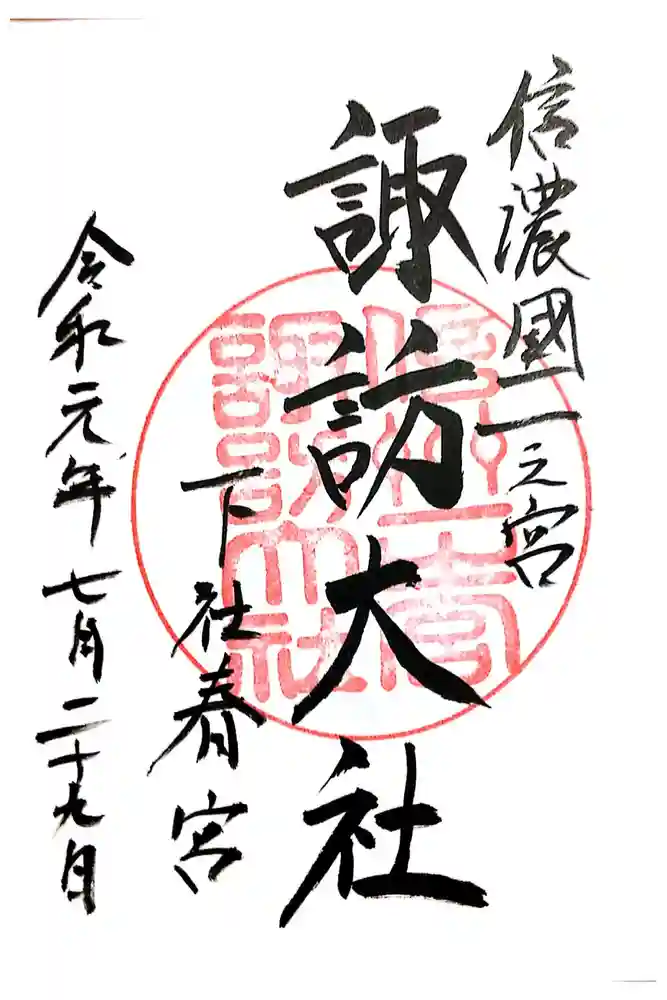 信濃國一之宮
諏訪大社
下社春宮
令和元年七月二十九日